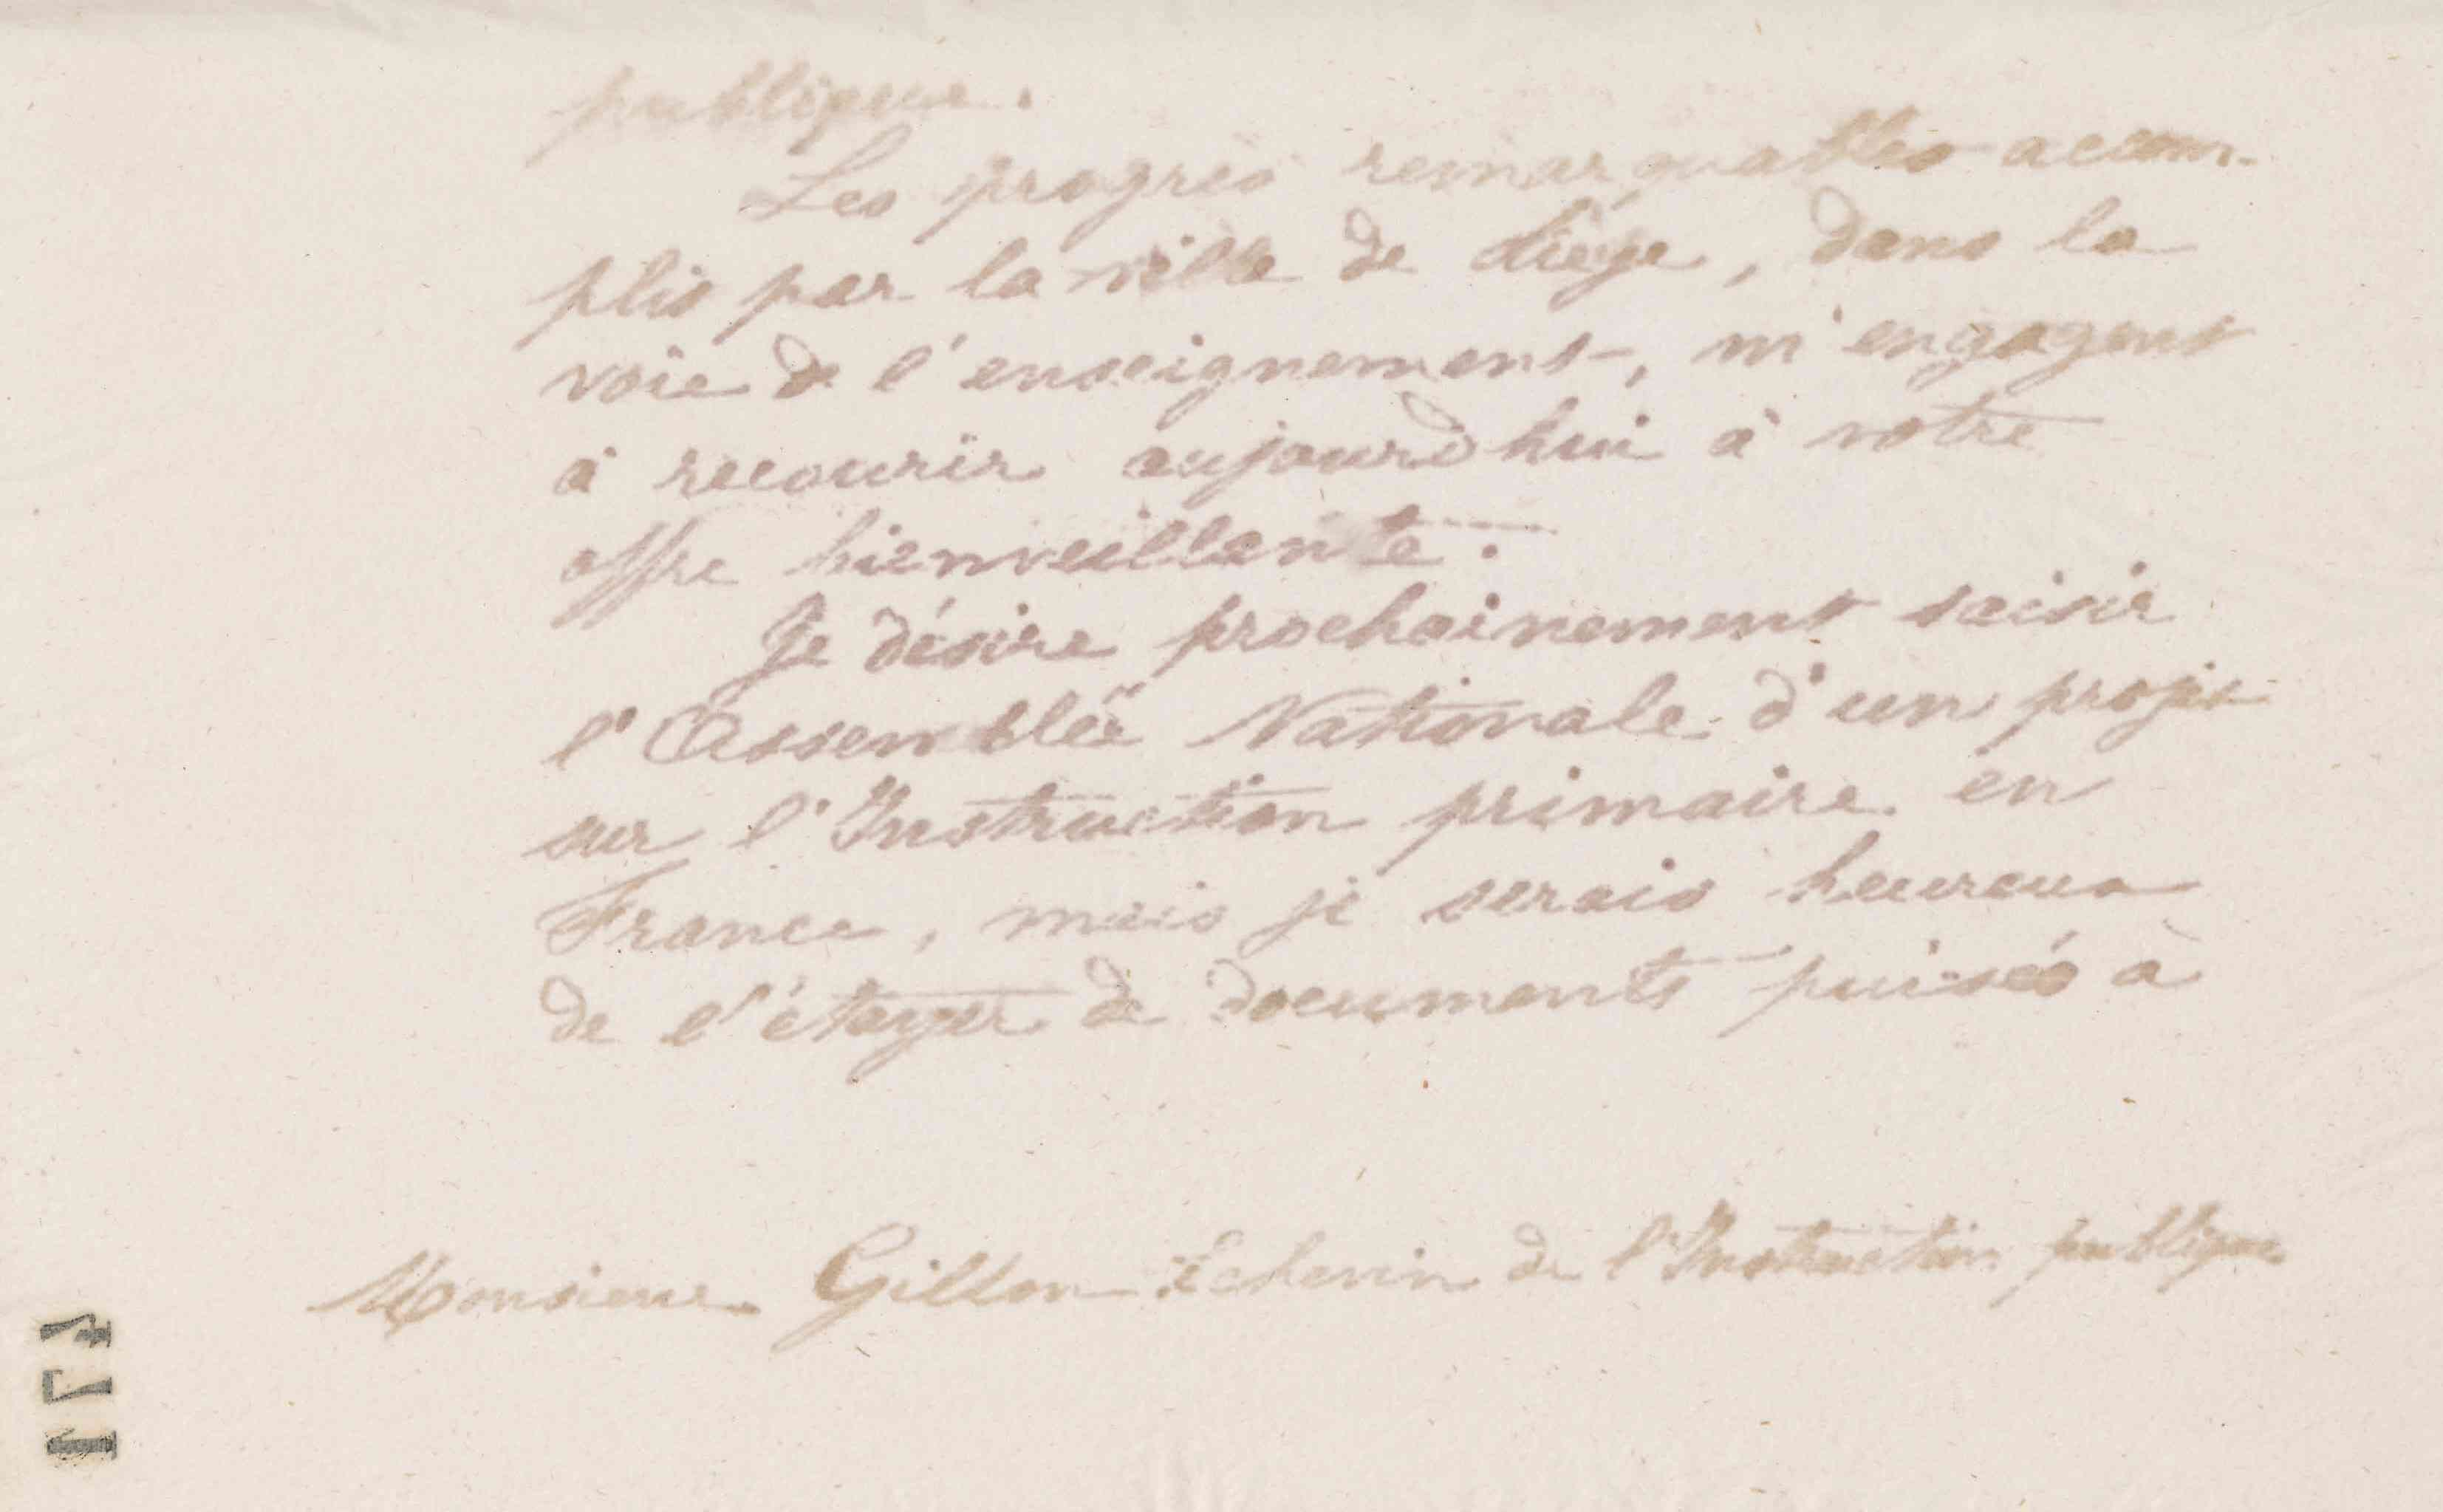 publique.
Les progrès remarquables accom-
plis par la ville de Liège, dans la
voie de l'enseignement, m'engagent
à recourir aujourd'hui à votre
offre bienveillante.
Je désire prochainement saisir
l'Assemblée Nationale d'un projet
sur l'Instruction primaire en
France, mais je serais heureux
de l'étayer de documents puisés à
Monsieur Gillon Echevin de l'Instruction publique